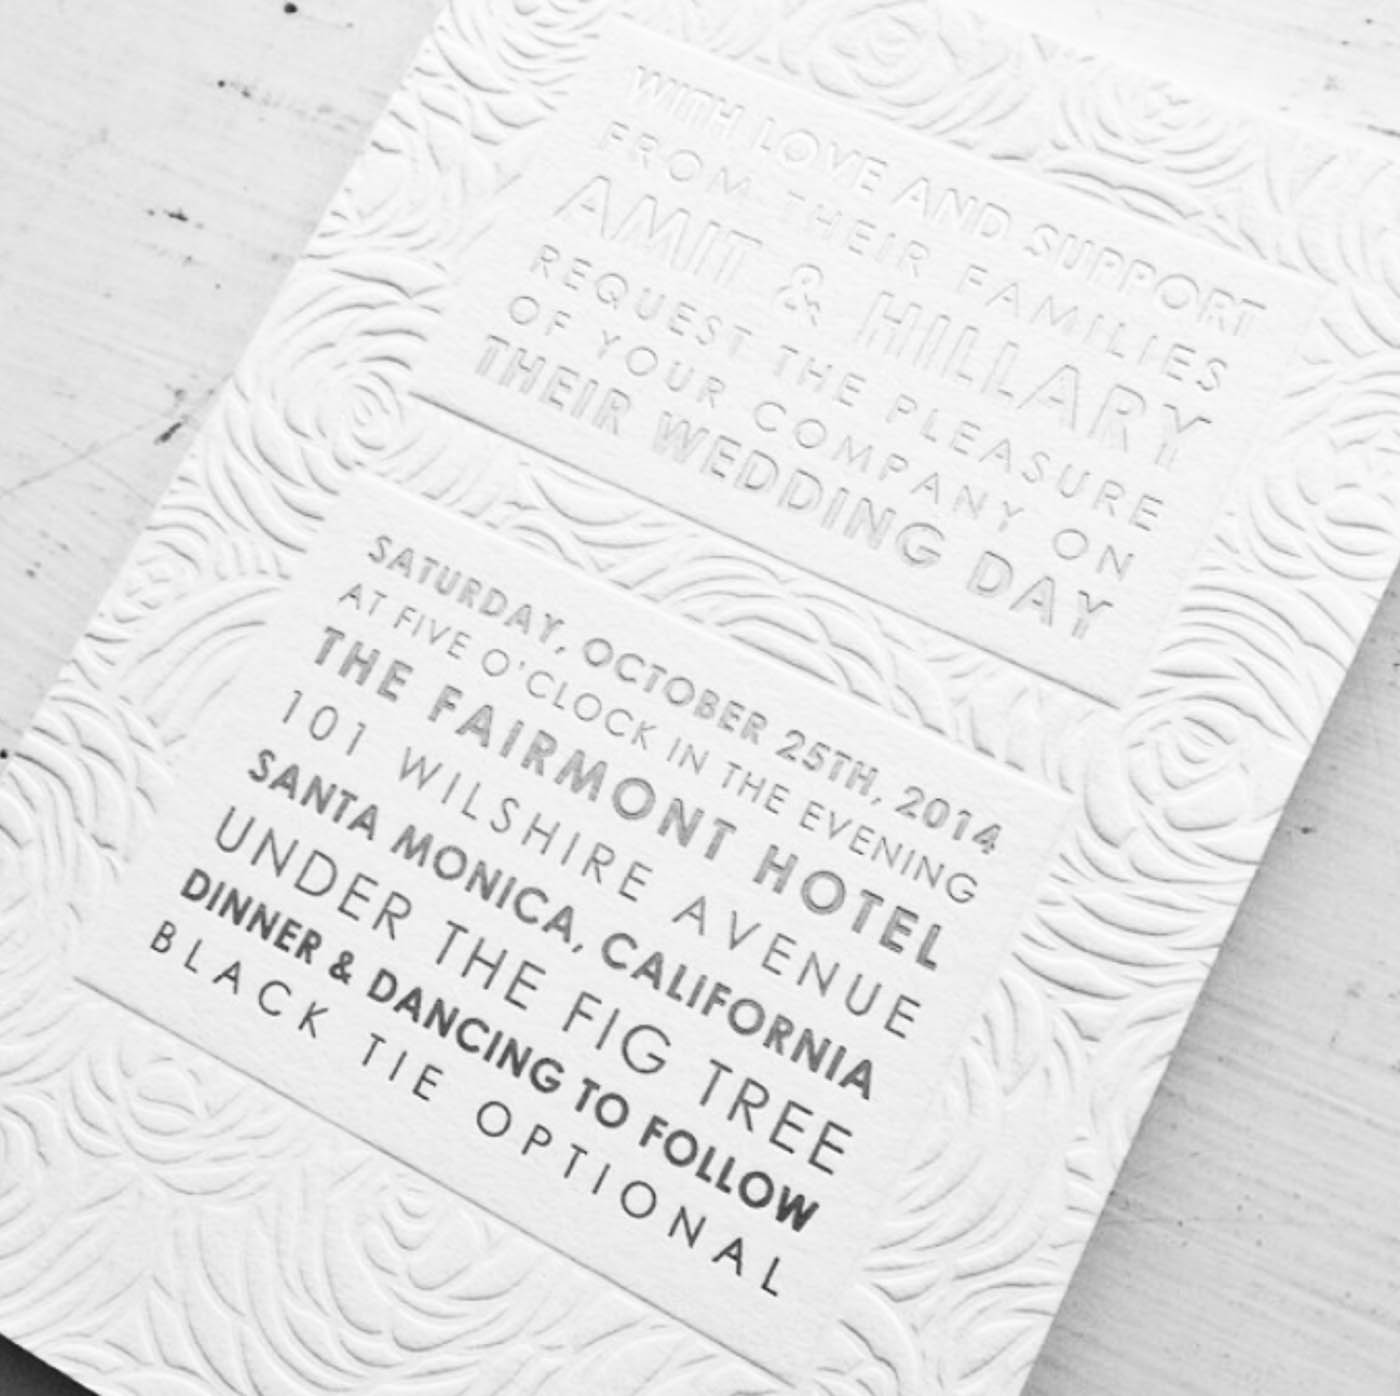 WITH LOVE AND SUPPORT
FROM THEIR FAMILIES
AMIT & HILLARY
REQUEST THE PLEASURE
OF YOUR COMPANY ON
THEIR WEDDING DAY
SATURDAY, OCTOBER 25TH, 2014
AT FIVE O'CLOCK IN THE EVENING
THE FAIRMONT HOTEL
101 WILSHIRE AVENUE
SANTA MONICA, CALIFORNIA
UNDER THE FIG TREE
DINNER & DANCING TO FOLLOW
BLACK TIE OPTIONAL